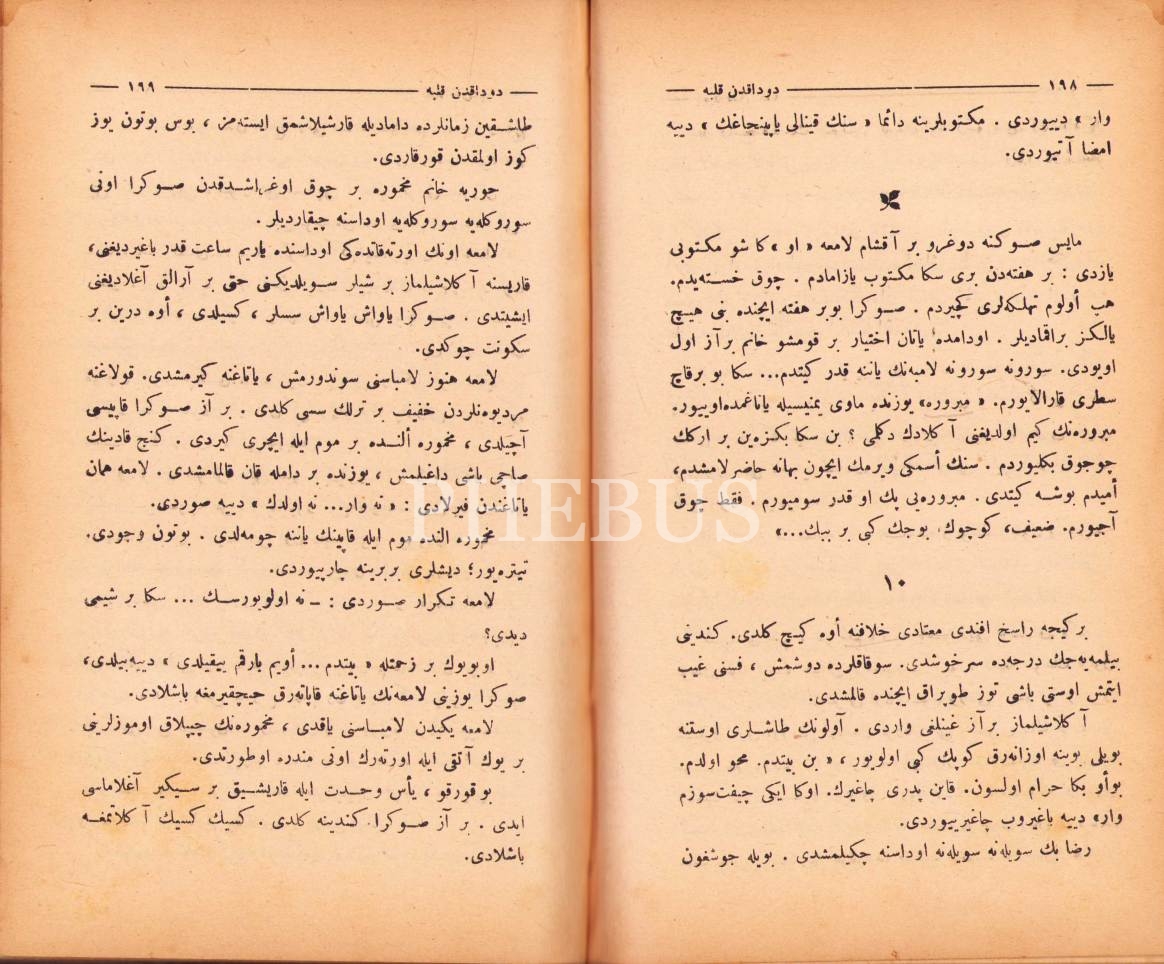 ١٩٨ دوداقدن قلبه
وار» دييوردى . مكتوبلرينه دائما « سنك قينالى ياپينجاغك » دييه
امضا آتيوردى.
مايس صوكنه دوغرو بر آقشام لامعه « او »كا شو مكتوبى
يازدى : بر هفته‌دن برى سكا مكتوب يازامادم . چوق خسته‌يدم.
هب أولوم تهلكه‌لرى كچيردم . صوكرا بوبر هفته ايچنده بنى هيچ
يالكز براقماديلر . اودامده ياتان اختيار بر قومشو خانم برآز اول
اويودى. سورونه سورونه لامبه‌نك ياننه قدر كيتدم... سكا بو برقاچ
سطرى قارالايورم. « مبروره» يوزنده ماوى يمنيسيله ياتاغمده‌اوييور.
مبروره‌نك كيم اولديغنى آكلادك دكلمى ؟ بن سكا بكزه‌ين بر اركك
چوجوق بكليوردم . سنك أسمكى ويرمك ايچون بهانه حاضرلامشدم،
أميدم بوشه كيتدى . مبروره‌يى پك او قدر سوميورم . فقط چوق
آجيورم. ضعيف، كوچوك بوجك كبى بر ببك...»
١٠
بركيجه راسخ افندى معتادى خلافنه أوه كيچ كلدى. كندينى
بيلمه‌يه‌جك درجه‌ده سرخوشدى. سوقاقلرده دوشمش ، فسنى غيب
ايتمش اوستى باشى توز طوپراق ايچنده قالمشدى.
آكلاشيلماز برآز غينلغى واردى . آولونك طاشلرى اوستنه
بويلى بوينه اوزانه‌رق كوپك كبى اولويور ، « بن بيتدم. محو اولدم.
بوأو بكا حرام اولسون. قاين پدرى چاغيرك. اوكا ايكى چيفت‌سوزم
وار» دييه باغيروب چاغيرييوردى.
رضا بك سويله‌نه سويله‌نه اوداسنه چكيلمشدى . بويله جوشغون
دوداقدن قلبه ١٩٩
طاشقين زمانلرده داماديله قارشيلاشمق ايسته‌مز ، بوس بوتون يوز
كوز اولمقدن قورقاردى.
حوريه خانم مخموره بر چوق اوغراشدقدن صوكرا اونى
سوروكله‌يه سوروكله‌يه اوداسنه چيقارديلر .
لامعه اونك اورته‌قاتده‌كى اوداسنده ياريم ساعت قدر باغيرديغنى،
قاريسنه آكلاشيلماز بر شيلر سويلديكنى حتى بر آرالق آغلاديغنى
ايشيتدى . صوكرا ياواش ياواش سسلر ، كسيلدى ، أوه درين بر
سكونت چوكدى.
لامعه هنوز لامباسنى سوندورمش ، ياتاغنه كيرمشدى. قولاغنه
مرديوه‌نلردن خفيف بر ترلك سسى كلدى . بر آز صوكرا قاپيسى
آچيلدى ، مخموره ألنده بر موم ايله ايچرى كيردى . كنج قادينك
صاچى باشى داغيلمش ، يوزنده بر دامله قان قالمامشدى . لامعه همان
ياتاغندن فيرلادى : « نه وار... نه اولدك » دييه صوردى.
مخموره النده موم ايله قاپينك ياننه چومه‌لدى . بوتون وجودى.
تيتره‌يور؛ ديشلرى بربرينه چارپيوردى.
لامعه تكرار صوردى : ــ نه اولويورسك ... سكا بر شيمى
ديدى؟
اوبويوك بر زحمتله « بيتدم ... أويم بارقم ييقيلدى » دييه‌بيلدى،
صوكرا يوزينى لامعه‌نك ياتاغنه قاپاته‌رق حيچقيرمغه باشلادى.
لامعه يكيدن لامباسنى ياقدى ، مخموره‌نك چيپلاق اوموزلرينى
بر يوك آتقى ايله اورته‌رك اونى مندره اوطورتدى.
بو قورقو ، يأس وحدت ايله قاريشيق بر سيكير آغلاماسى
ايدى . بر آز صوكرا كندينه كلدى . كسيك كسيك آكلاتمغه
باشلادى.
PHEBUS